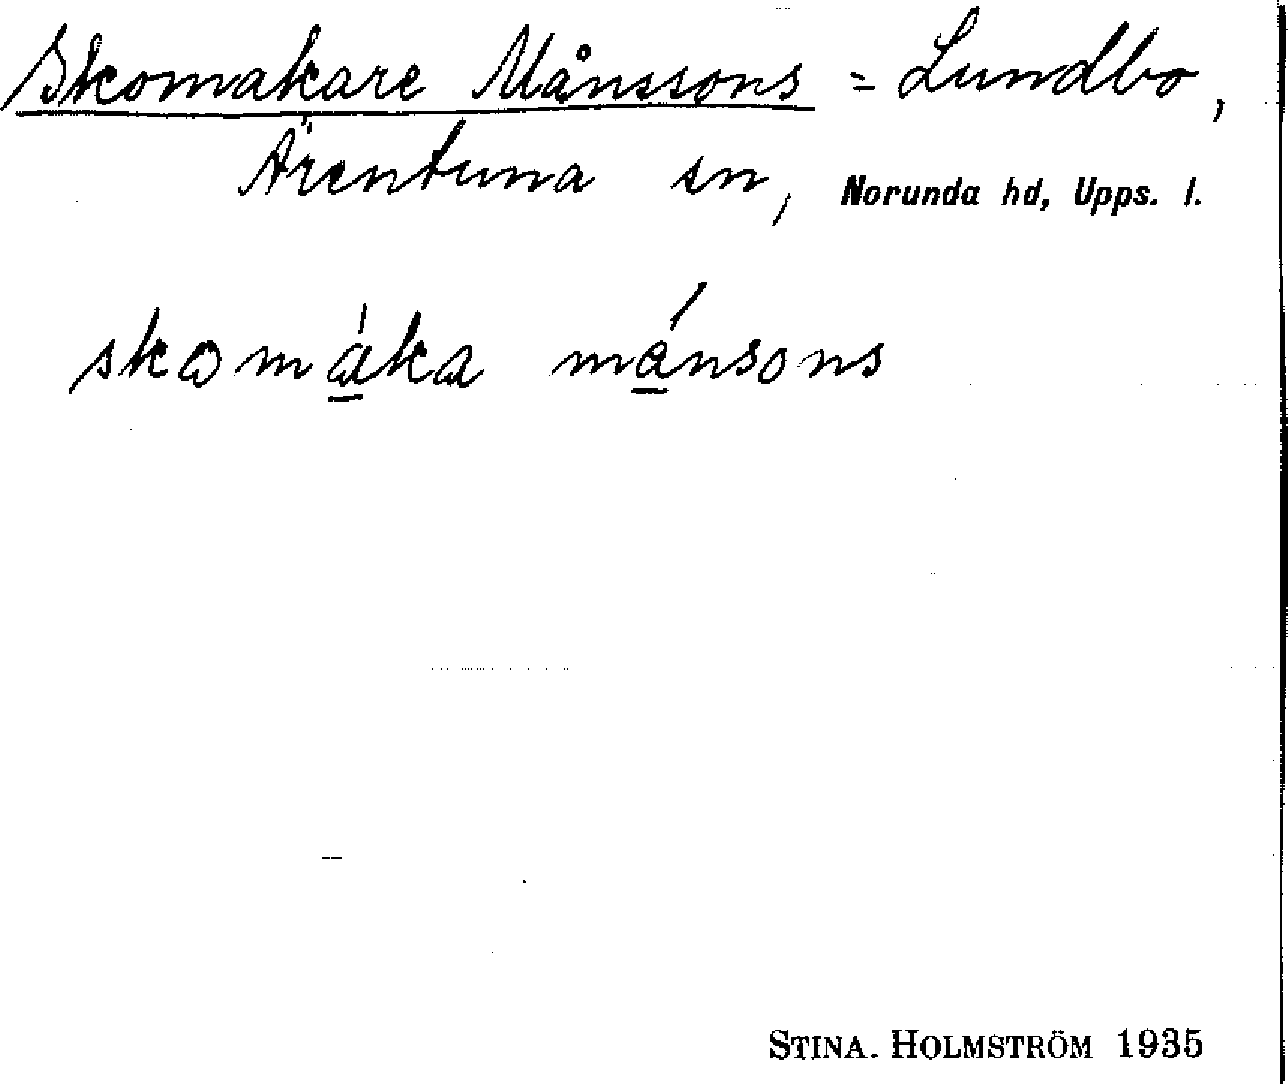 Skomakare Månssons = Lundbo,
Ärentuna sn, Norunda hd, Upps. l.
skomáka mánsons
STINA. HOLMSTRÖM 1935